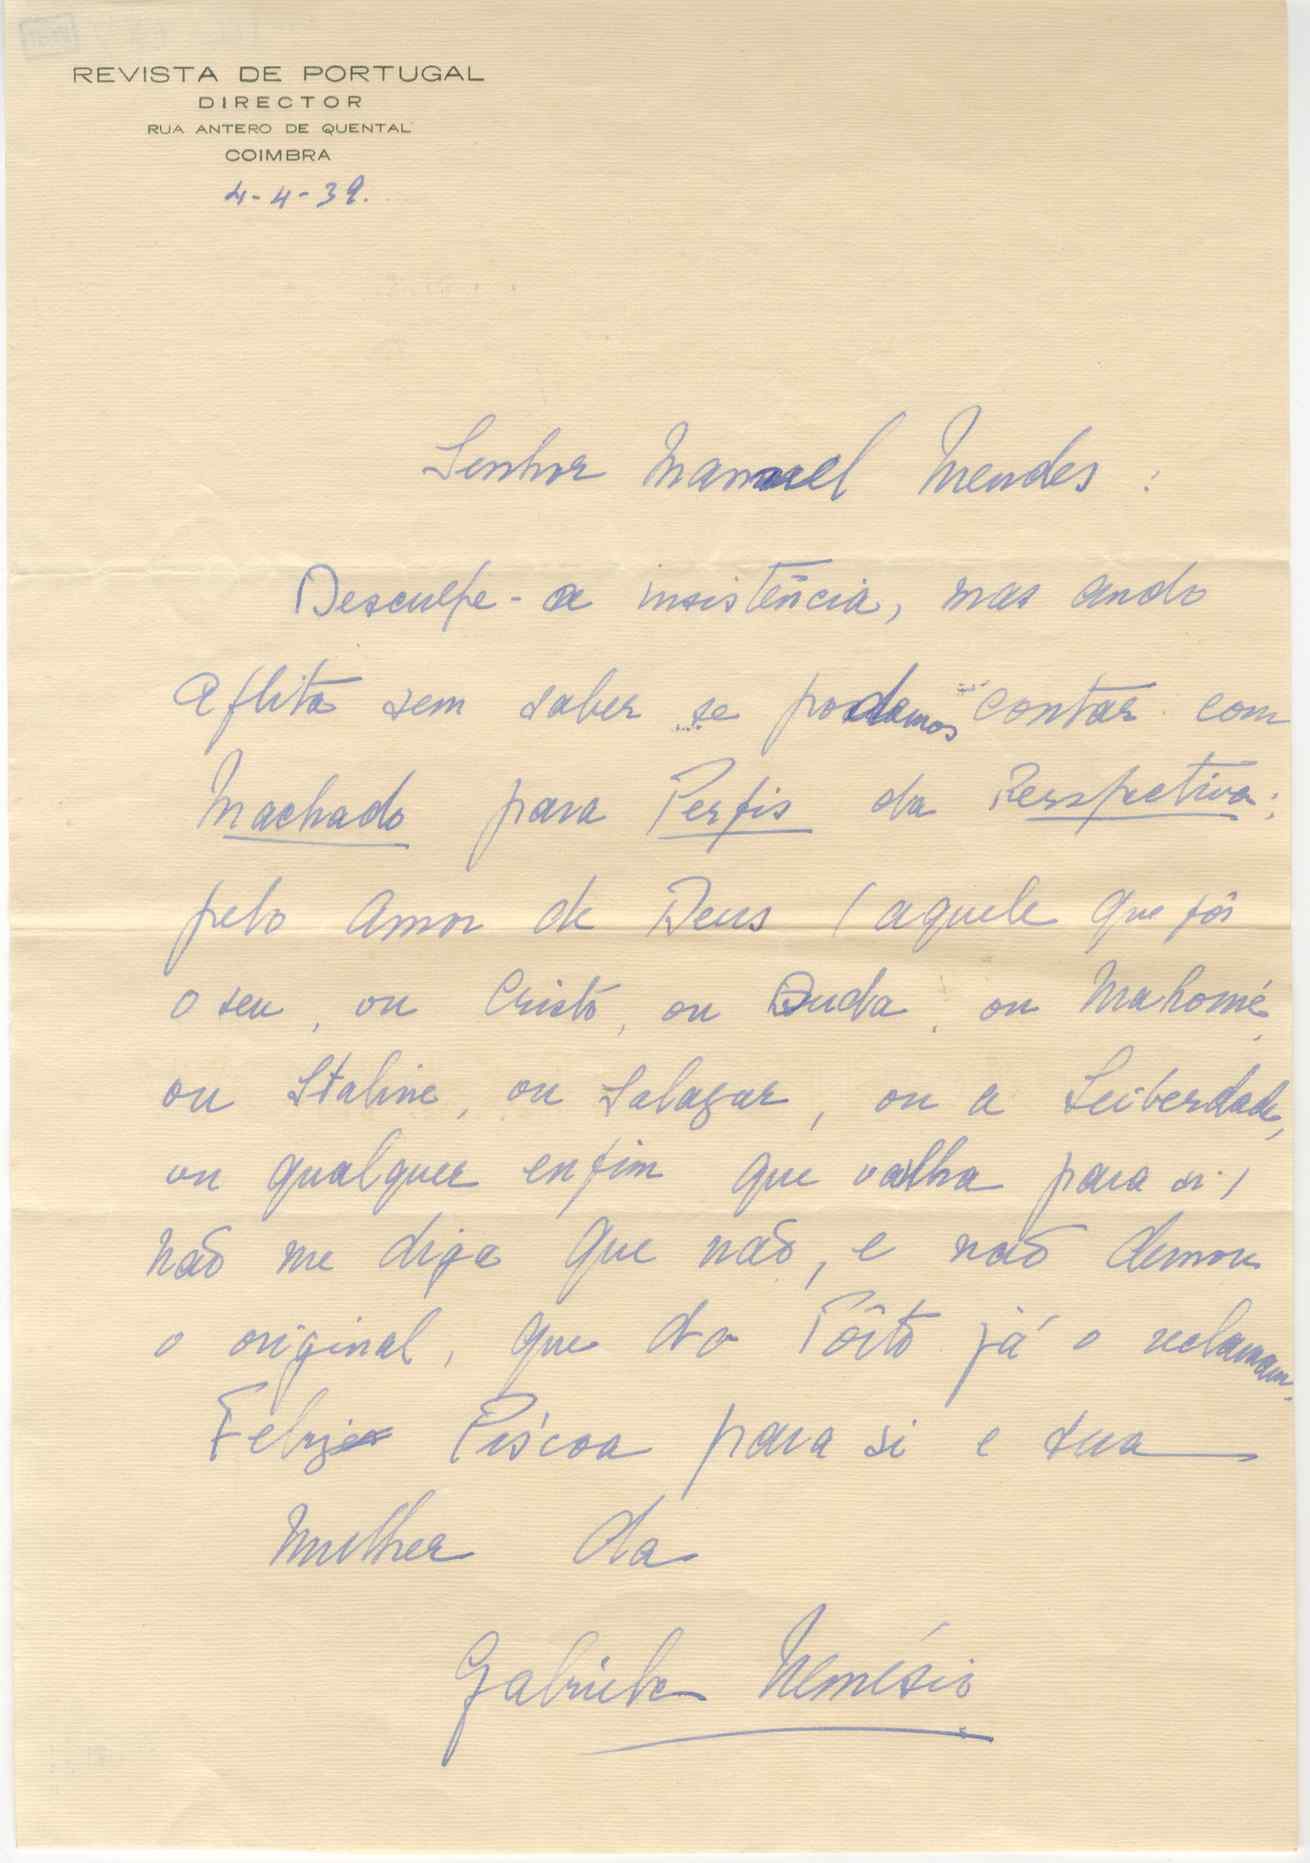 REVISTA DE PORTUGAL
DIRECTOR
RUA ANTERO DE QUENTAL
COIMBRA
4-4-39.
Senhor Manuel Mendes :
Desculpe-a insistência, mas ando
aflita sem saber se podemos contar com
Machado para Perfis da Perspetiva;
pelo Amor de Deus (aquele que fôr
o seu, ou Cristo, ou Buda, ou Mahomé,
ou Staline, ou Salazar, ou a Leiberdade,
ou qualquer enfim que valha para si)
não me diga que não, e não demore
o original, que do Pôrto já o reclamam.
Feliz Páscoa para si e sua
Mulher da
Gabriela Nemésio